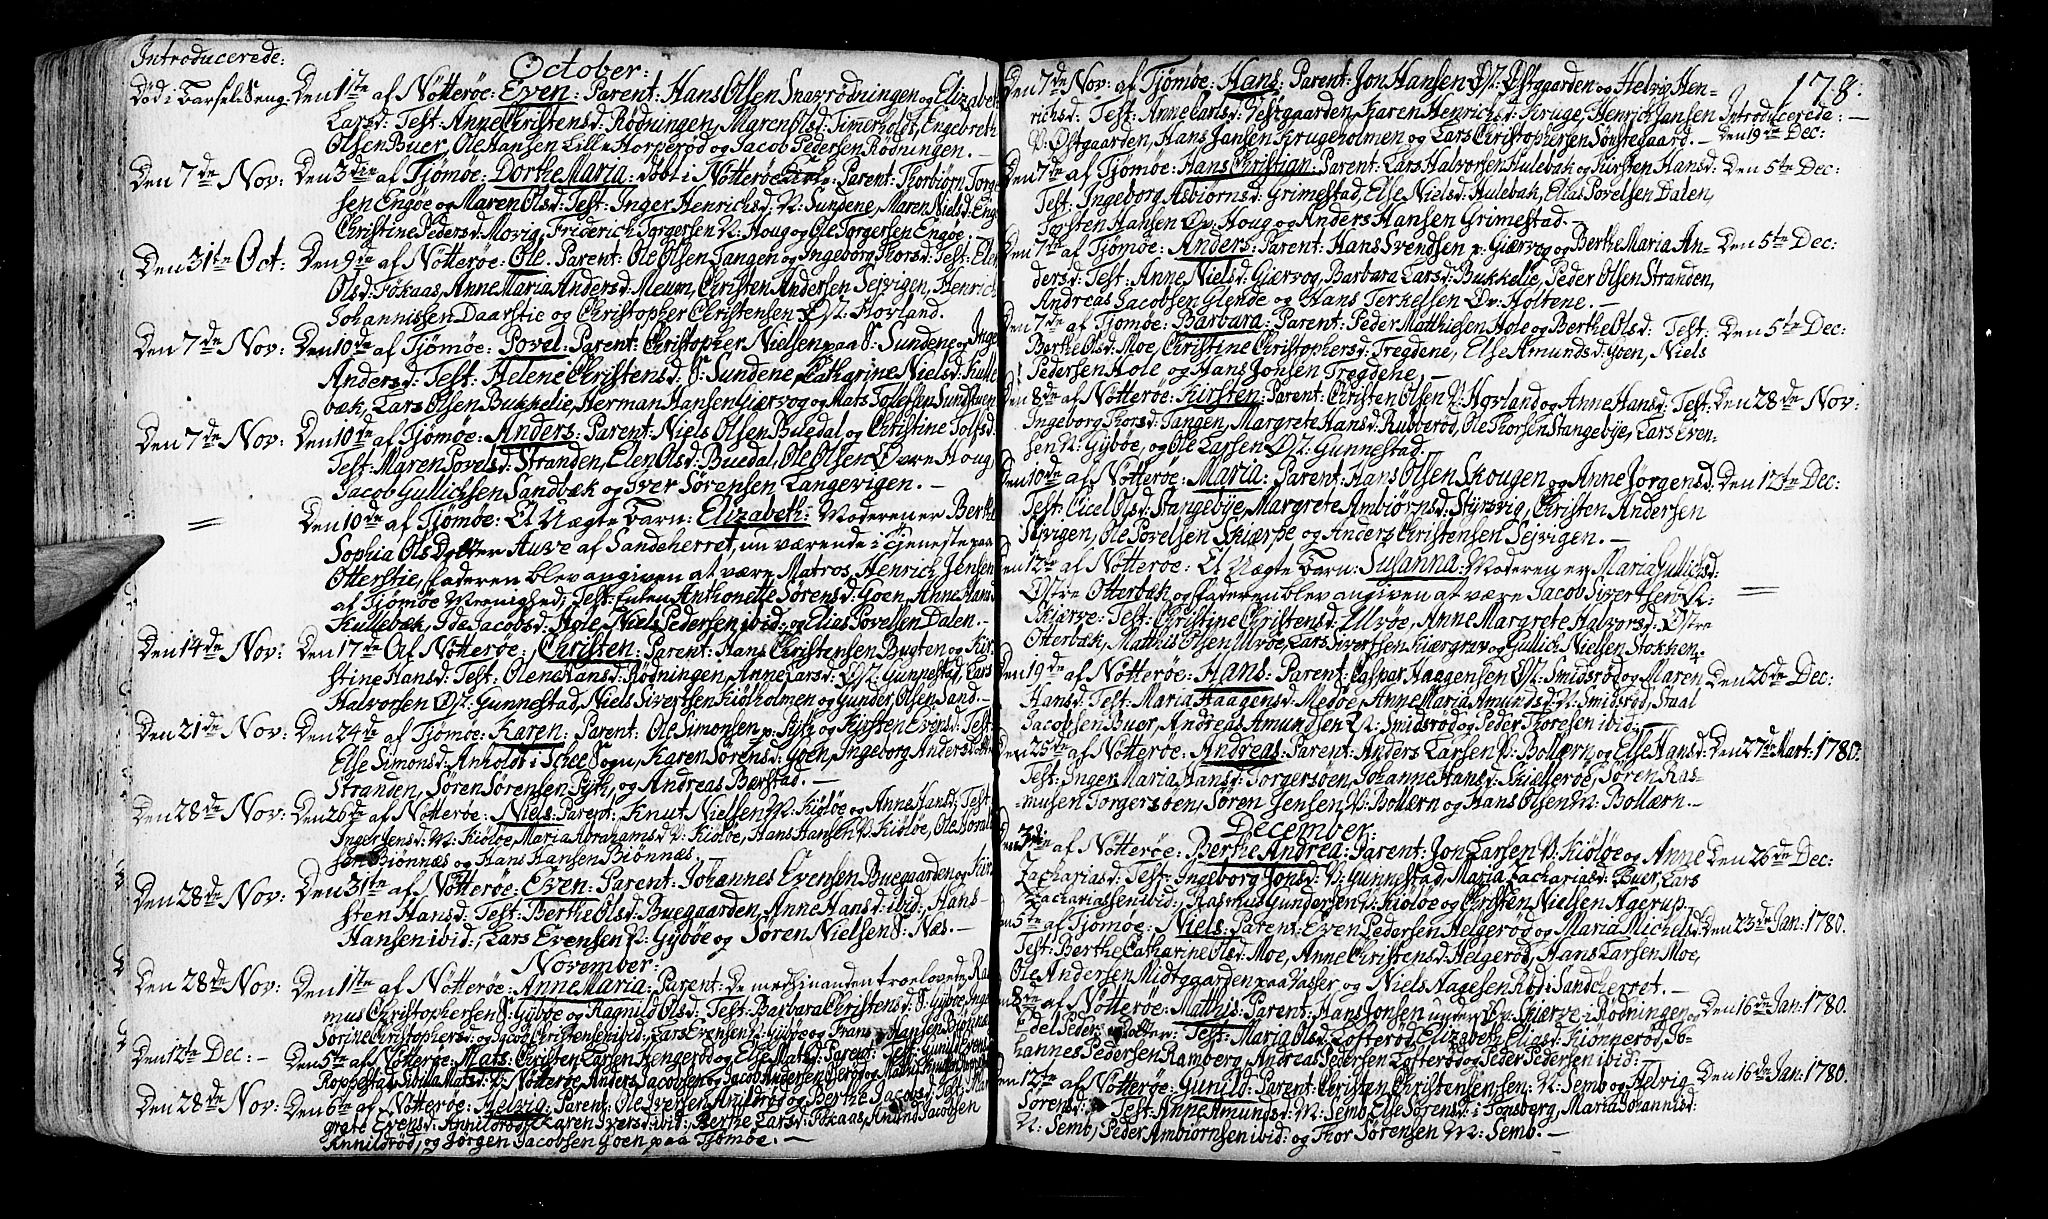 Introducerede:
October:
Död i Barsel Seng: Den 1ste af Nötteröe: Even: Parent: Hans Olsen Snaxrödningen og Elizabeth
Larsd: Test: Anne Christensd: Rödningen, Maren Olsd: Timmerholt, Engebreth
Olsen Buer, Ole Hansen Lille Horperöd og Jacob Pedersen Rödningen. —
Den 7de Nov: Den 3die af Tjömöe: Dorthe Maria: döbt i Nötteröe Kirke: Parent: Thorbiörn Torger
sen Engöe og Maren Olsd: Test: Inger Henrichsd: N: Sundene, Maren Nielsd: Eng
Christine Pedersd: Movig, Friderich Torgersen N: Houg og Ole Torgersen Engöe.
Den 31te Oct: Den 9de af Nötteröe: Ole: Parent: Ole Olsen Tangen og Ingeborg Thorsd: Test: Elen
Olsd: Fokaas, Anne Maria Andersd: Meum, Christen Andersen Sejvigen, Henrich
Johannissen Daarstie og Christopher Christensen Øst: Hovland.
Den 7de Nov: Den 10de af Tjömöe: Povel: Parent: Christopher Nielsen paa S: Sundene og Inge
Andersd: Test: Helene Christensd: S: Sundene, Catharine Nielsd: Kulle
bæk, Lars Olsen Bukkelie, Herman Hansen Giærvog og Mats Tollefsen Sundstuen
Den 7de Nov: Den 10de af Tjömöe: Anders: Parent: Niels Olsen Buedal og Christine Tolfsd:
Test: Maren Povelsd: Stranden, Elen Olsd: Buedal, Ole Olsen Øvre Houg,
Jacob Gullichsen Sandbæk og Iver Sörensen Langevigen. —
= Den 10de af Tjömöe: Et Uægte Barn: Elizabeth: Moderen er Berthe
Sophia Ols Dotter Auve af Sandeherret, nu værende i Tjeneste paa
Otterstie, faderen blev angiven at være Matros Henrich Jensen
af Tjömöe Meenighed, Test: Enken Anthonette Sörensd: Goen, Anne Hansd
Kullebæk, Ide Jacobsd: Hole, Niels Pedersen ibid: og Elias Povelsen Dalen. —
Den 14de Nov: Den 17de Af Nötteröe: Christen: Parent: Hans Christensen Bugten og Kir
stine Hansd: Test: Olene Hansd: Rödningen, Anne Larsd: Øst: Gunnestad, Lars
Halvorsen Øst: Gunnestad, Niels Sivertsen Kiöhholmen og Gunder Olsen Sand.
Den 21de Nov: Den 24de af Tjömöe: Karen: Parent: Ole Simonsen p: Pyth og Kirsten Evensd: Test:
Else Simonsd: Anholdt i Schee Sogn, Karen Sörensd: Goen, Ingeborg Andersd:
Stranden, Sören Sörensen Pyth, og Andreas Bærstad. —
Den 28de Nov: Den 26de af Nötteröe: Niels: Parent: Knut Nielsen N: Kiölöe og Anne Hansd: Test:
Inger Jensd: N: Kiölöe, Maria Abrahamsd: N: Kiölöe, Hans Hansen N: Kiölöe, Ole
sen Biönnæs og Hans Hansen Biönnæs.
Den 28de Nov: Den 31te af Nötteröe: Even: Parent: Johannes Evensen Buegaarden og Kir
sten Hansd: Test: Berthe Olsd: Buegaarden, Anne Hansd: ibid:, Hans
Hansen ibid:, Lars Evensen N: Gyböe og Sören Nielsen S: Næs. —
November:
Den 28de Nov: Den 1ste af Nötteröe: Anne Maria: Parent: De med hinanden troelovede Ras
mus Christophersen S: Gyböe og Ragnild Olsd: Test: Barbara Christensd: S: Gyböe, Inge
Sörine Christophersd: og Jacob Christensen ibid:, Lars Evensen N: Gyböe og Frans Hansen
Den 12te Dec: — Den 5te af Nötteröe: Mats: Christen Larsen Kengeröd og Else Matsd: Parent: Test: Gunild Evensd
Roppestad, Sibilla Matsd: N: Nötteröe, Anders Jacobsen og Jacob Andersen
Den 28de Nov: Den 6te af Nötteröe: Helvig: Parent: Ole Iversen Annildröd og Berthe Jacobsd: Test: Mar
grete Evensd: Annildröd, Karen Iversd: ibid: Berthe Larsd: Fokaas, Amund Jacobsen
Annildröd, og Jörgen Jacobsen Goen paa Tjömöe. —
178.
Den 7de Nov: af Tjömöe: Hans: Parent: Jon Hansen Øst: Østgaarden og Helvig Hen-
richsd: Test: Anne Larsd: Østgaarden, Karen Henrichsd: Kruge, Henrich Jansen Introducerede: —
V: Østgaarden, Hans Jansen Krugeholmen og Lars Christophersen Sönstegaard. — Den 19de Dec:
Den 7de af Tjömöe: Hans Christian: Parent: Lars Halvorsen Hulebak og Kirsten Hansd: Den 5te Dec:
Test: Ingeborg Asbiörnsd: Grimestad, Else Nielsd: Hulebak, Elias Povelsen Dalen,
Torsten Hansen Øv: Houg og Anders Hansen Grimestad. —
Den 7de af Tjömöe: Anders: Parent: Hans Svendsen p: Giærvog og Berthe Maria An- Den 5te Dec:
dersd: Test: Anne Nielsd: Giærvog, Barbara Larsd: Bukkelie, Peder Olsen Stranden,
Andreas Jacobsen Glende og Hans Terkelsen Øv: Holtene. —
Den 7de af Tjömöe: Barbara: Parent: Peder Matthisen Hole og Berthe Olsd: Test: Den 5te Dec:
Berthe Olsd: Moe, Christine Christophersd: Tregdene, Else Amundsd: Goen, Niels
Pedersen Hole og Hans Jonsen Tregdene. —
Den 8de af Nötteröe: Kirsten: Parent: Christen Olsen V: Hovland og Anne Hansd: Test: Den 28de Nov:
Ingeborg Thorsd: Tangen, Margrete Hansd: Rubberöd, Ole Thorsen Stangebÿe, Lars Even-
sen N: Gyböe, og Ole Larsen Øst: Gunnestad.
Den 10de af Nötteröe: Maria: Parent: Hans Olsen Skougen og Anne Jörgensd: Den 12te Dec:
Test: Cicel Olsd: Stangebÿe, Margrete Ambiörnsd: Styrsvig, Christen Andersen
Sejvigen, Ole Povelsen Skiærpe og Anders Christensen Sejvigen. —
Den 12te af Nötteröe: Et Uægte Barn: Susanna: Moderen er Maria Gullichsd: =
Østre Otterbæk og faderen blev angiven at være Jacob Sivertsen N:
Skiærve: Test: Christine Christensd: Ulvöe, Anne Margrete Halvorsd: Østre
Otterbæk, Mathis Olsen Ulvöe, Lars Sivertsen Kiærgrav og Gullich Nielsen Stokken.
Den 19de af Nötteröe: Hans: Parent: Caspar Haagensen Øst: Smidsröd og Maren Den 26de Dec:
Hansd: Test: Maria Haagensd: Medöe, Anne Maria Amundsd: N: Smidsröd, Staal
Jacobsen Buer, Andreas Amundsen N: Smidsröd og Peder Thoresen ibid: —
Den 25de af Nötteröe: Andreas: Parent: Anders Larsen V: Bollærn og Else Hansd: Den 27de Mart: 1780.
Test: Inger Maria Hansd: Torgersöen, Johanne Hansd: Skielleröe, Sören Ras-
musen Torgersöen, Sören Jensen V: Bollærn og Hans Olsen M: Bollærn. —
December:
Den 3die af Nötteröe: Berthe Andrea: Parent: Jon Larsen V: Kiölöe og Anne Den 26de Dec:
Zachariasd: Test: Ingeborg Jonsd: N: Gunnestad, Maria Zachariasd: Buer, Lars
Zachariassen ibid:, Rasmus Gundersen N: Kiölöe og Christen Nielsen Agerup.
Den 5te af Tjömöe: Niels: Parent: Even Pedersen Helgeröd og Maria Michelsd: Den 23de Jan: 1780.
Test: Berthe Catharine Olsd: Moe, Anne Christensd: Helgeröd, Hans Larsen Moe,
Ole Andersen Midtgaarden paa Vasser og Niels Aagesen Röd i Sandeherret. —
Den 8de af Nötteröe: Mathis: Parent: Hans Jonsen under Øv: Skiærve i Rödningen og Den 16de Jan: 1780.
Edel Peders Dotter: Test: Maria Olsd: Lofteröd, Elizabeth Eliasd: Kiönneröd, Jo-
hannes Pedersen Ramberg, Andreas Pedersen Lofteröd og Peder Pedersen ibid:
Den 12te af Nötteröe: Gunild: Parent: Christen Christensen N: Semb og Helvig Den 16de Jan: 1780.
Sörensd: Test: Anne Amundsd: N: Semb, Else Sörensd: i Tonsberg, Maria Johannisd:
N: Semb, Peder Ambiörnsen ibid: og Thor Sörensen N: Semb. —